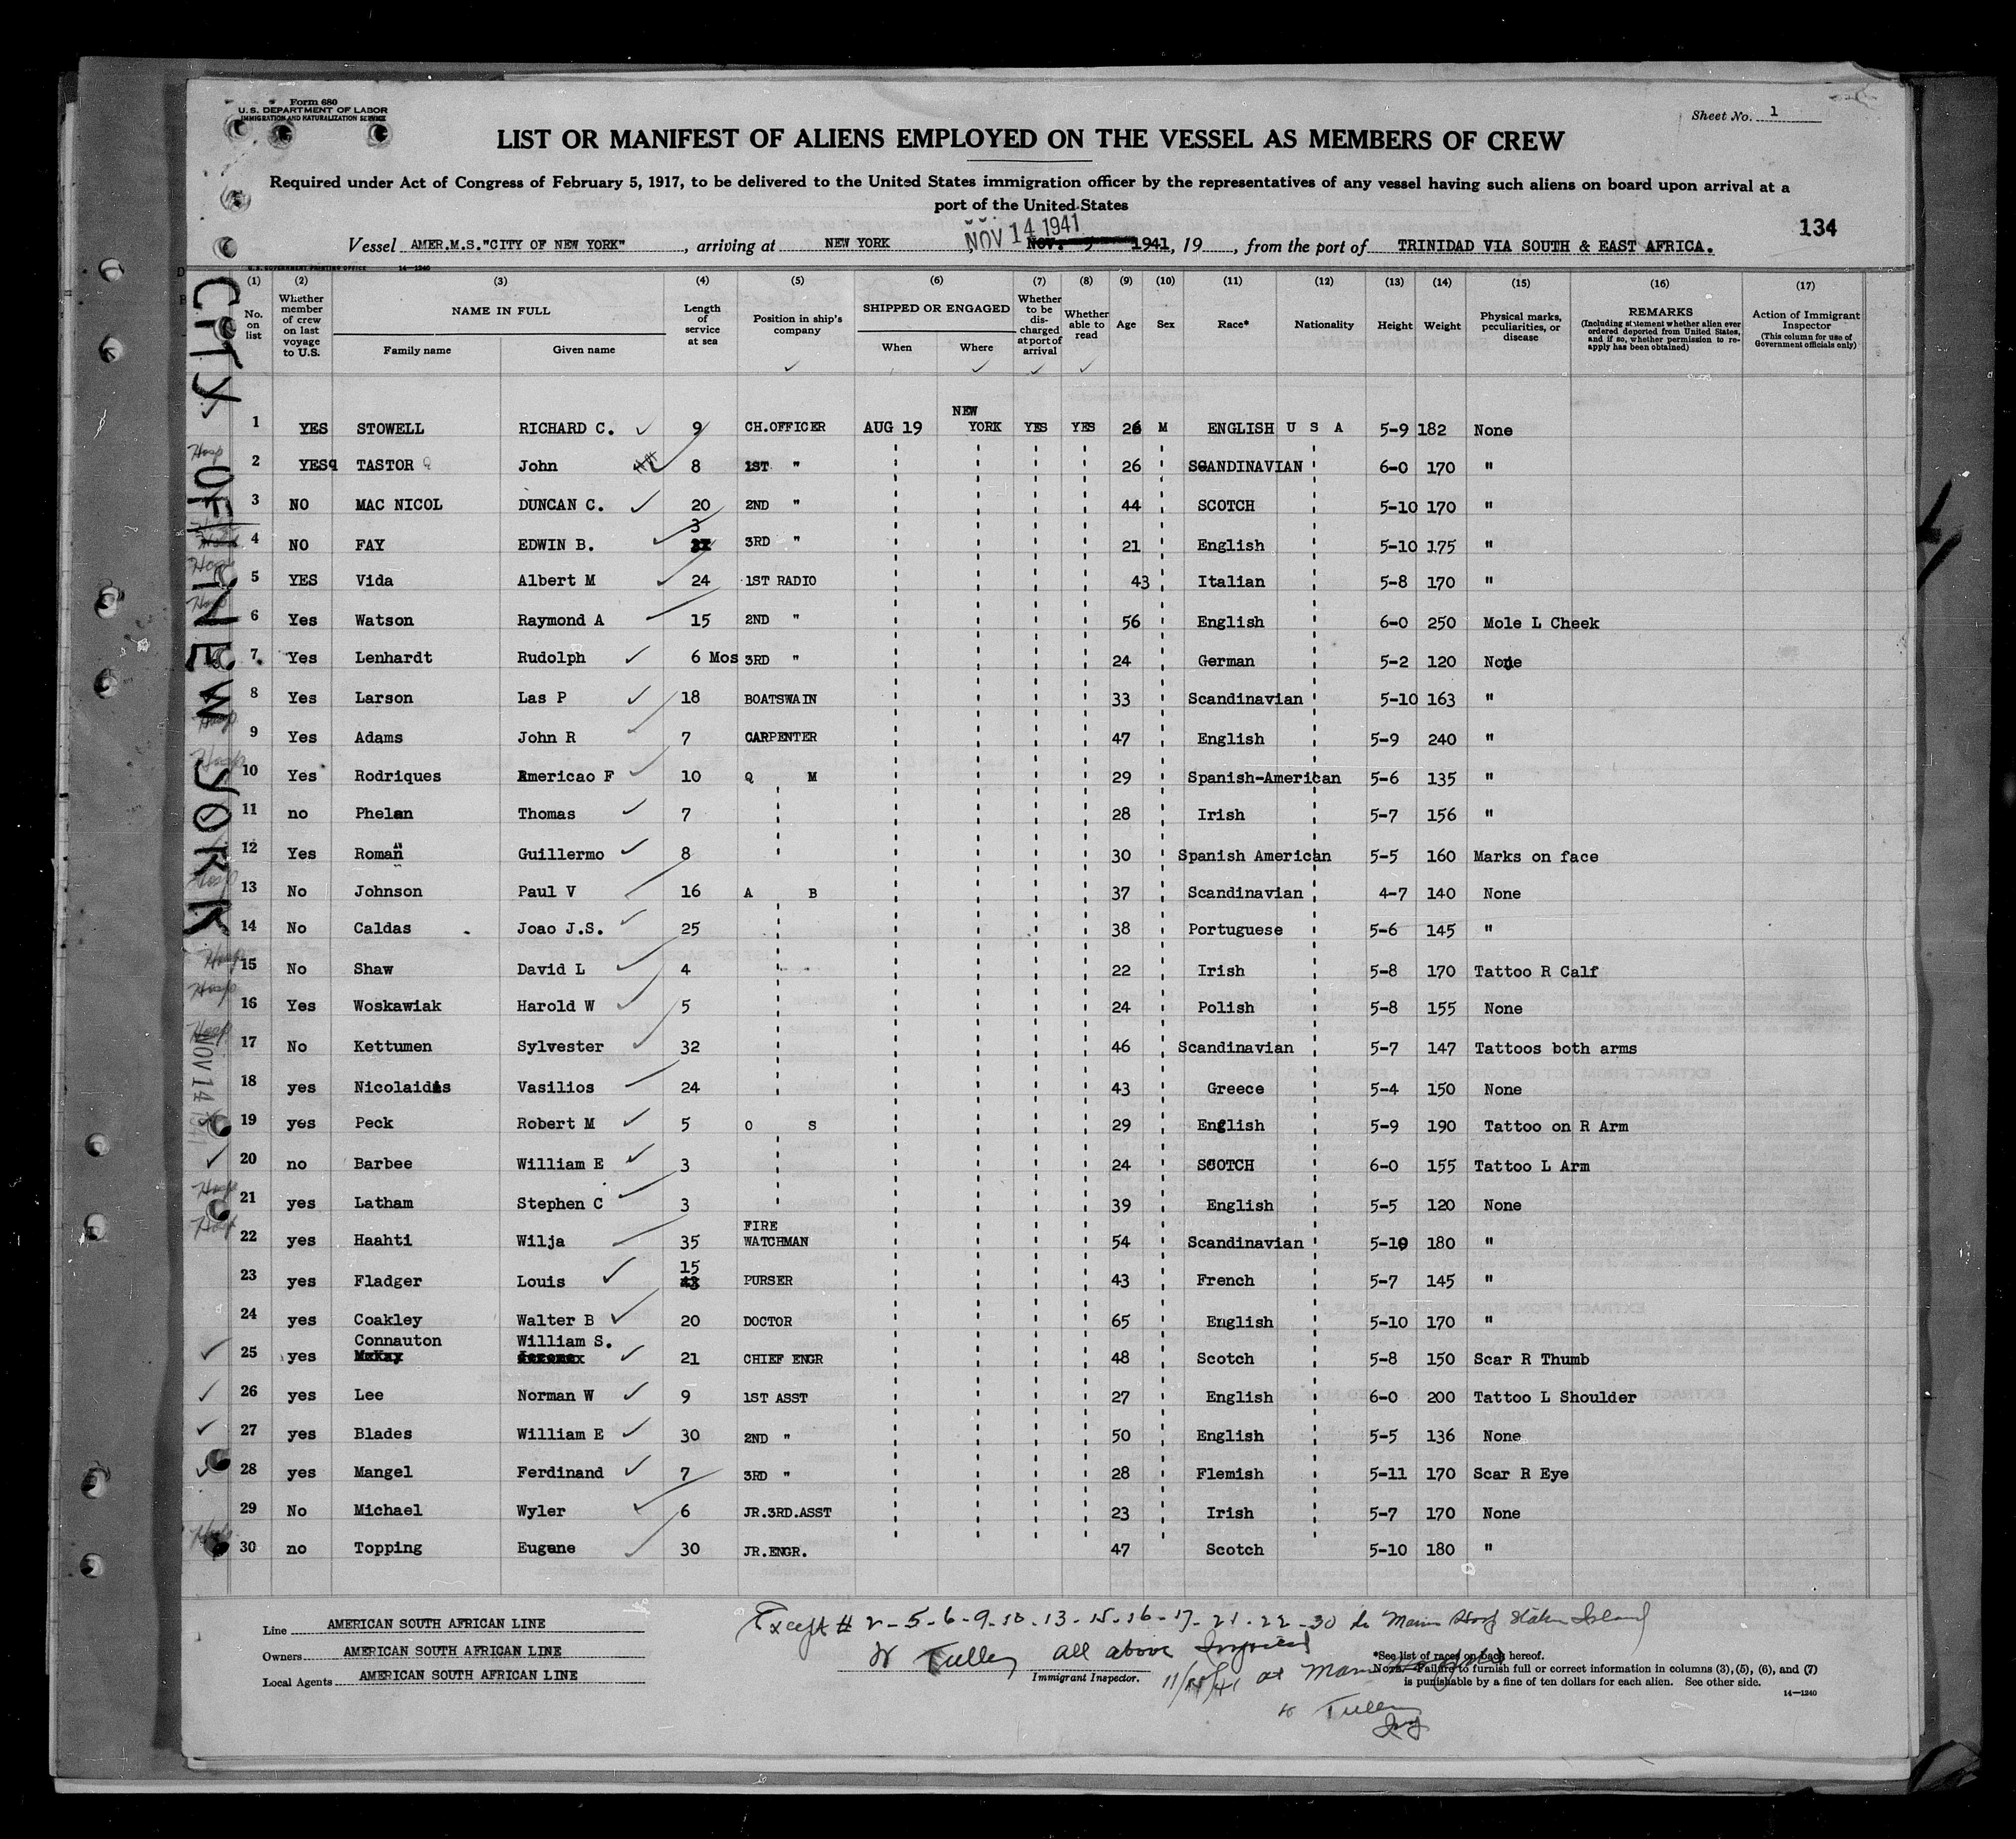 Form 680
U.S. DEPARTMENT OF LABOR
IMMIGRATION AND NATURALIZATION SERVICE
Sheet No. 1
LIST OR MANIFEST OF ALIENS EMPLOYED ON THE VESSEL AS MEMBERS OF CREW
Required under Act of Congress of February 5, 1917, to be delivered to the United States immigration officer by the representatives of any vessel having such aliens on board upon arrival at a
port of the United States
134
NOV 14 1941
Vessel AMER.M.S."CITY OF NEW YORK", arriving at NEW YORK NOV. 1941, 19, from the port of TRINIDAD VIA SOUTH & EAST AFRICA.
U.S. GOVERNMENT PRINTING OFFICE 14—1240
CITY OF NEW YORK
NOV 14 1941
(1) No. on list
(2) Whether member of crew on last voyage to U.S.
(3) NAME IN FULL Family name Given name
(4) Length of service at sea
(5) Position in ship's company
(6) SHIPPED OR ENGAGED When Where
(7) Whether to be discharged at port of arrival
(8) Whether able to read
(9) Age
(10) Sex
(11) Race*
(12) Nationality
(13) Height
(14) Weight
(15) Physical marks, peculiarities, or disease
(16) REMARKS (Including statement whether alien ever ordered deported from United States, and if so, whether permission to reapply has been obtained)
(17) Action of Immigrant Inspector (This column for use of Government officials only)
1 YES STOWELL RICHARD C. 9 CH.OFFICER AUG 19 NEW YORK YES YES 26 M ENGLISH U S A 5-9 182 None
Hosp 2 YES TASTOR John 8 1ST " 26 SCANDINAVIAN 6-0 170 "
3 NO MAC NICOL DUNCAN C. 20 2ND " 44 SCOTCH 5-10 170 "
4 NO FAY EDWIN B. 3 3RD " 21 English 5-10 175 "
Hosp 5 YES Vida Albert M 24 1ST RADIO 43 Italian 5-8 170 "
Hosp 6 Yes Watson Raymond A 15 2ND " 56 English 6-0 250 Mole L Cheek
7 Yes Lenhardt Rudolph 6 Mos 3RD " 24 German 5-2 120 None
8 Yes Larson Las P 18 BOATSWAIN 33 Scandinavian 5-10 163 "
Hosp 9 Yes Adams John R 7 CARPENTER 47 English 5-9 240 "
Hosp 10 Yes Rodriques Americao F 10 Q M 29 Spanish-American 5-6 135 "
11 no Phelan Thomas 7 28 Irish 5-7 156 "
12 Yes Roman Guillermo 8 30 Spanish American 5-5 160 Marks on face
Hosp 13 No Johnson Paul V 16 A B 37 Scandinavian 4-7 140 None
14 No Caldas Joao J.S. 25 38 Portuguese 5-6 145 "
Hosp 15 No Shaw David L 4 22 Irish 5-8 170 Tattoo R Calf
Hosp 16 Yes Woskawiak Harold W 5 24 Polish 5-8 155 None
Hosp 17 No Kettumen Sylvester 32 46 Scandinavian 5-7 147 Tattoos both arms
18 yes Nicolaidis Vasilios 24 43 Greece 5-4 150 None
19 yes Peck Robert M 5 O S 29 English 5-9 190 Tattoo on R Arm
20 no Barbee William E 3 24 SCOTCH 6-0 155 Tattoo L Arm
Hosp 21 yes Latham Stephen C 3 39 English 5-5 120 None
Hosp 22 yes Haahti Wilja 35 FIRE WATCHMAN 54 Scandinavian 5-10 180 "
23 yes Fladger Louis 15 43 PURSER 43 French 5-7 145 "
24 yes Coakley Walter B 20 DOCTOR 65 English 5-10 170 "
25 yes Connauton McKay William S. 21 CHIEF ENGR 48 Scotch 5-8 150 Scar R Thumb
26 yes Lee Norman W 9 1ST ASST 27 English 6-0 200 Tattoo L Shoulder
27 yes Blades William E 30 2ND " 50 English 5-5 136 None
28 yes Mangel Ferdinand 7 3RD " 28 Flemish 5-11 170 Scar R Eye
29 No Michael Wyler 6 JR.3RD.ASST 23 Irish 5-7 170 None
Hosp 30 no Topping Eugene 30 JR.ENGR. 47 Scotch 5-10 180 "
Line AMERICAN SOUTH AFRICAN LINE
Owners AMERICAN SOUTH AFRICAN LINE
Local Agents AMERICAN SOUTH AFRICAN LINE
Except # 2-5-6-9-10-13-15-16-17-21-22-30 to Marine Hosp Staten Island
W Tulley all above Inspected
Immigrant Inspector.
at Marine Hospital
W Tulley
Insp
*See list of races on back hereof.
NOTE.—Failure to furnish full or correct information in columns (3), (5), (6), and (7)
is punishable by a fine of ten dollars for each alien. See other side.
14—1240